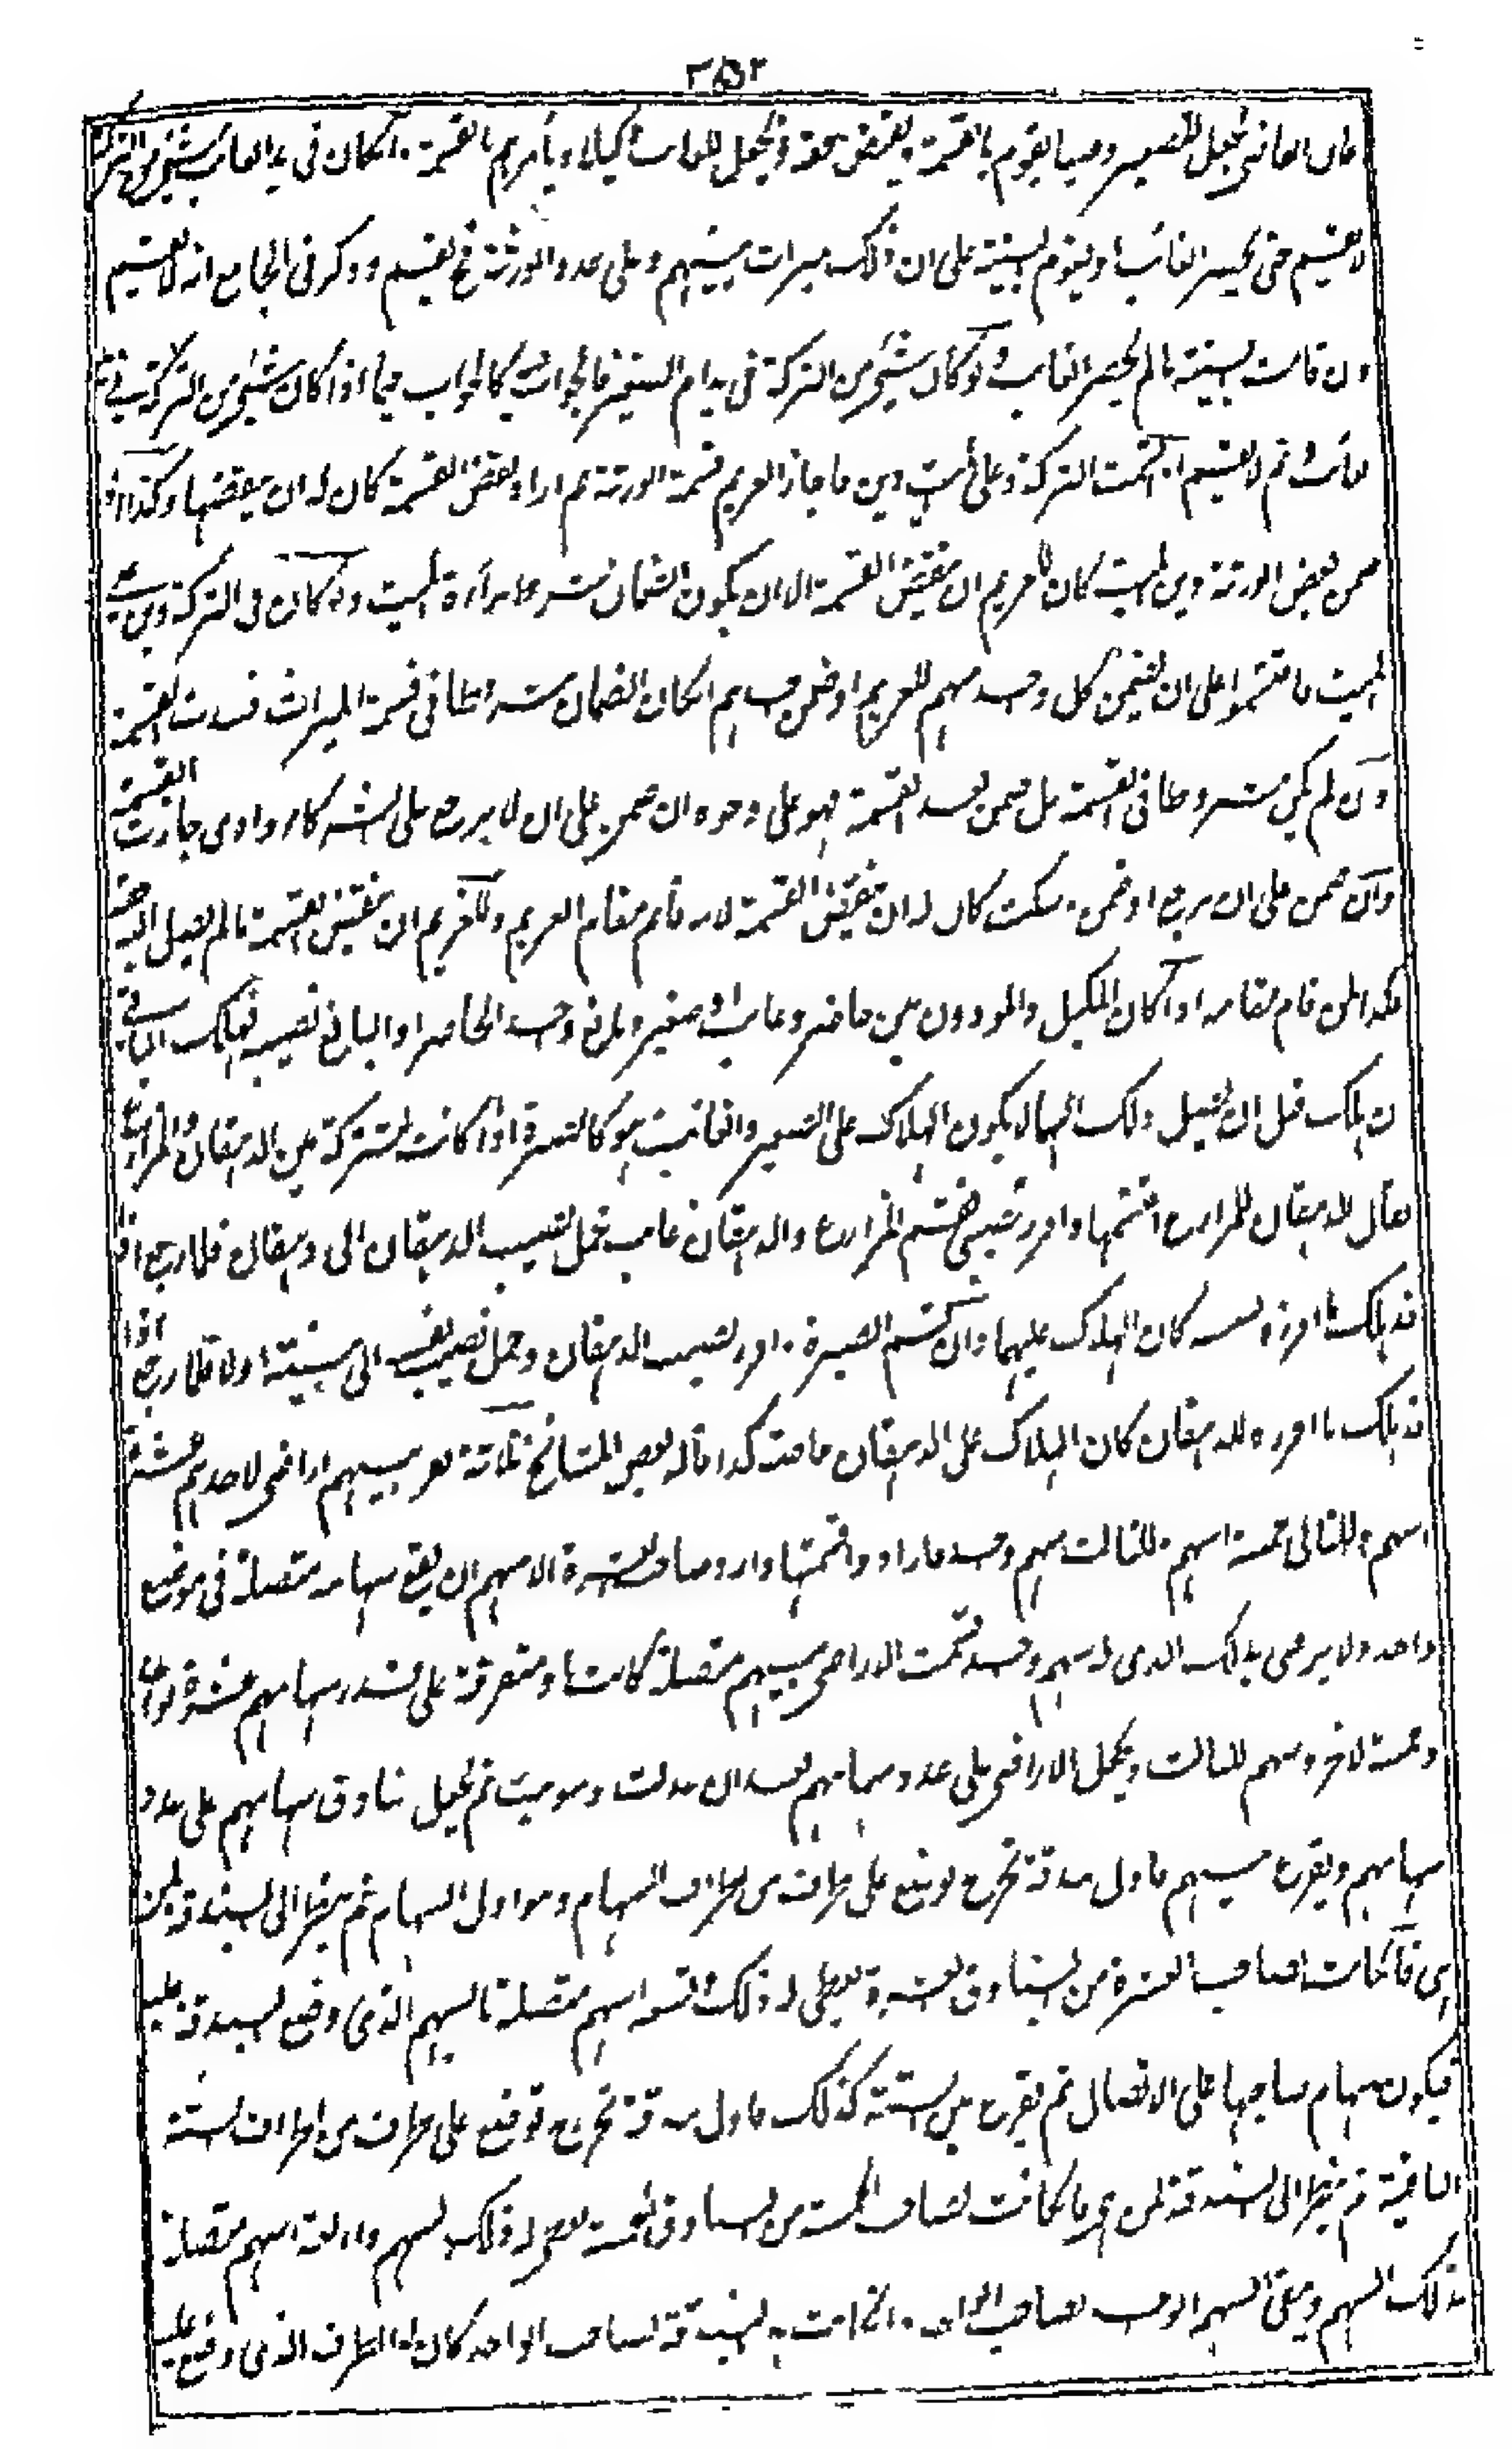 ٣٥٢
فان القاضى يجعل للصغير وصيا يقوم بالقسمة و يقبض حقه ويجعل للغائب وكيلا ويأمرهم بالقسمة وان كان فى يد الغائب شئ من التركة
لا يقسم حتى يحضر الغائب او يقوم البينة على ان ذلك ميراث بينهم وعلى عدد الورثة فح يقسم وذكر فى الجامع انه لا يقسم
وان قامت البينة ما لم يحضر الغائب ولو كان شئ من التركة فى يد ام الصغير فالجواب كالجواب فيما اذا كان شئ من التركة فى يد
الغائب ثم لا يقسم اذا قسمت التركة وعلى الميت دين فاجاز الغريم قسمة الورثة ثم اراد نقض القسمة كان له ان ينقضها وكذا اذا
ضمن بعض الورثة دين الميت كان للغريم ان ينقض القسمة الا ان يكون الضمان بشرط براءة الميت ولو كان فى التركة دين
الميت فاقتسموا على ان يضمن كل واحد منهم للغريم او ضمن احدهم ان كان الضمان مشروطا فى قسمة الميراث فسدت القسمة
وان لم يكن مشروطا فى القسمة بل ضمن بعد القسمة فهو على وجوه ان ضمن على ان لا يرجع على الشركاء وادى جازت القسمة
وان ضمن على ان يرجع او ضمن وسكت كان له ان ينقض القسمة لانه قائم مقام الغريم وللغريم ان ينقض القسمة ما لم يصل اليه حقه
فكذا لمن قام مقامه اذا كان المكيل والموزون بين حاضر وغائب او صغير وبالغ فاخذ الحاضر او البالغ نصيبه فهلك الباقى
ان هلك قبل ان يصل ذلك اليهما يكون الهلاك على الصغير والغائب هو كالصبرة اذا كانت مشتركة بين الدهقان والمزارع
فقال الدهقان للمزارع اقسمها وافرز نصيبى فقسم المزارع والدهقان غائب فحمل نصيب الدهقان الى الدهقان فلما رجع اذا
قد هلك ما افرزه لنفسه كان الهلاك عليهما وان قسم الصبرة وافرز نصيب الدهقان وحمل نصيب نفسه الى بيته اولا فلما رجع اذا
قد هلك ما افرزه للدهقان كان الهلاك على الدهقان خاصة كذا قاله بعض المشائخ ثلاثة نفر بينهم اراضى لاحدهم عشرة
اسهم وللثانى خمسة اسهم وللثالث سهم واحد فارادوا قسمتها واراد صاحب العشرة الاسهم ان يقع سهامه متصلة فى موضع
واحد ولا يرضى بذلك الذى له سهم واحد قسمت الاراضى بينهم متصلة كانت او متفرقة على قدر سهامهم عشرة لواحد
وخمسة لاخر وسهم للثالث ويجعل الاراضى على عدد سهامهم بعد ان عدلت وسويت ثم يجعل بنادق سهامهم على عدد
سهامهم ويقرع بينهم فاول بندقة تخرج توضع على طرف من اطراف السهام وهو اول السهام ثم ينظر الى البندقة لمن
هى فان كانت لصاحب العشرة من البنادق العشرة يعطى له ذلك وتسعة اسهم متصلة بالسهم الذى وضع البندقة عليه
فيكون سهام صاحبها على الاتصال ثم يقرع بين الستة كذلك فاول بندقة تخرج توضع على طرف من اطراف الستة
الباقية ثم ينظر الى البندقة لمن هى فان كانت لصاحب الخمسة من البنادق الخمسة يعطى له ذلك السهم واربعة اسهم متصلة
بذلك السهم ويبقى السهم الواحد لصاحب الواحد وان كانت هذه البندقة لصاحب الواحد كان له الطرف الذى وضع عليه